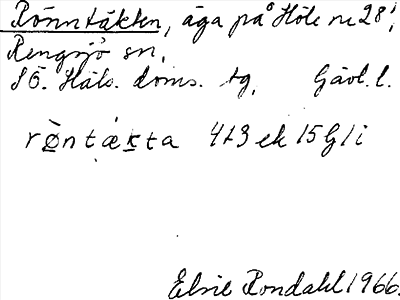 Rönntäkten, äga på Höle nr 28 i
Rengsjö sn,
SÖ. Häls. doms. tg, Gävl. l.
rø̀ntækta 473 ek 15 G1i
Elsie Rondahl 1966.